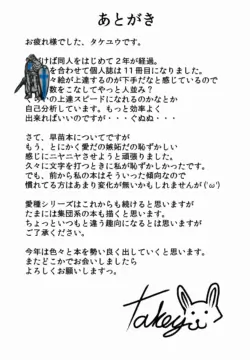 あとがき
お疲れ様でした、タケユウです。
けば同人をはじめて2年が経過。
を合わせて個人誌は11冊目になりました。
々絵が上達するのが下手だなと感じているので
数をこなしてやっと人並み?
いの上達スピードになれるのかなとか
自己分析しています。もっと効率よく
出来ればいいのですが・・・ぐぬぬ・・・
さて、早苗本についてですが
もう、とにかく愛だの嫉妬だの恥ずかしい
感じにニヤニヤさせようと頑張りました。
久々に文字を打つときに私が恥ずかしかったです。
でも、前から私の本はそういった傾向なので
慣れてる方はあまり変化が無いかもしれませんが('ω')
愛種シリーズはこれからも続けると思いますが
たまには集団系の本も描くと思います。
ちょっといつもと違う趣向になるとは思いますが
ご了承ください。
今年は色々と本を勢い良く出していくと思います。
またどこかでお会いしましたら
よろしくお願いしますっ。
takeyu